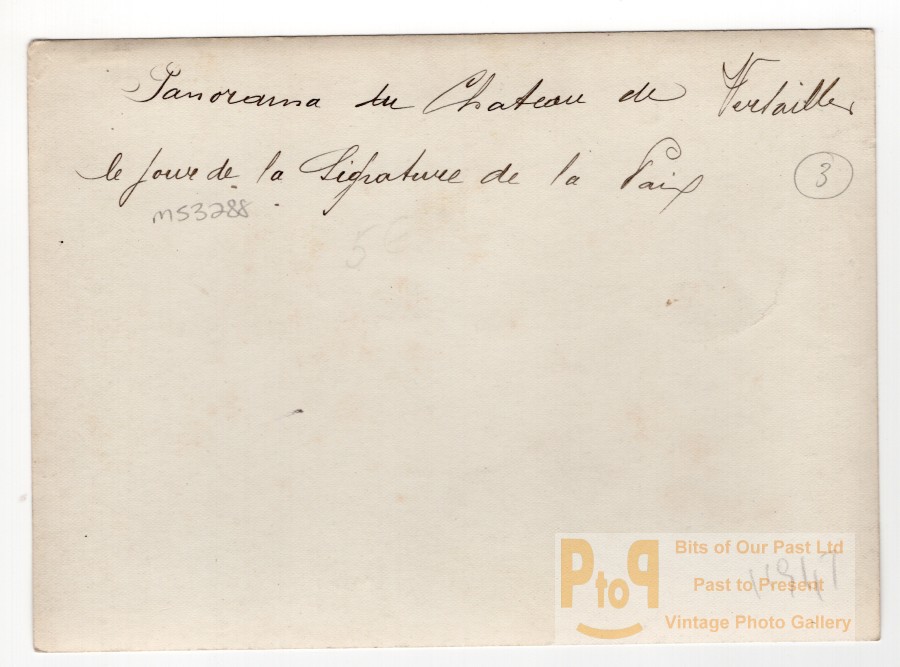 Panorama du Chateau de Versailles
le jour de la Signature de la Paix
3
MS3288
Bits of Our Past Ltd
PtoP
Past to Present
Vintage Photo Gallery